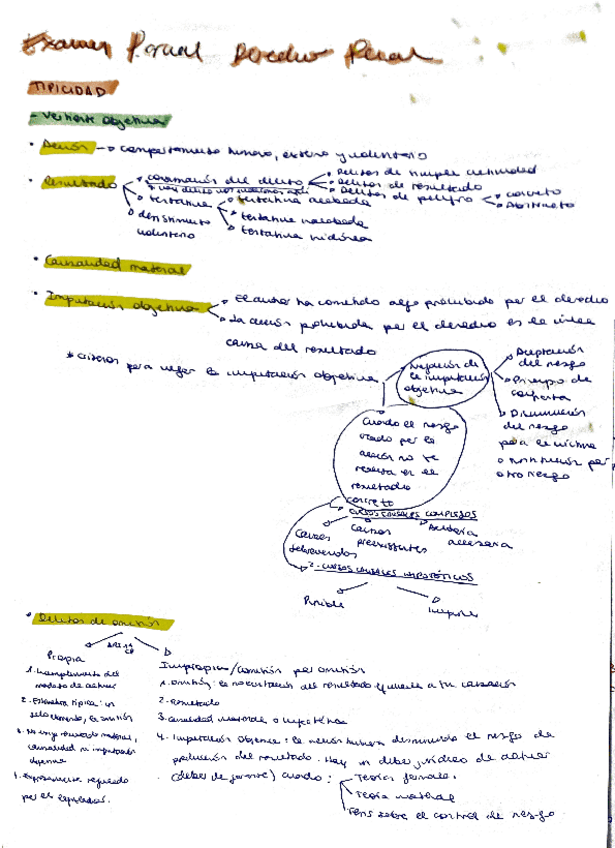 Examen Parcial Derecho Penal
TIPICIDAD
- Vertiente objetiva
• Acción → comportamiento humano, externo y voluntario
• Resultado
• consumación del delito
• Delitos de simple actividad
• Delitos de resultado
• Delitos de peligro
• concreto
• Abstracto
• tentativa
• tentativa acabada
• tentativa inacabada
• tentativa inidónea
• desistimiento
voluntario
• Causalidad material
• Imputación objetiva
• El autor ha cometido algo prohibido por el derecho
• La acción prohibida por el derecho es la única
causa del resultado
* criterios para negar la imputación objetiva
Negación de
la imputación
objetiva
• Aceptación
del riesgo
• Principio de
confianza
• Disminución
del riesgo
para la víctima
o sustitución por
otro riesgo
Cuando el riesgo
creado por la
acción no se
realiza en el
resultado
concreto
cursos causales complejos
Causas
sobrevenidas
Causas
preexistentes
accesoria
2- cursos causales hipotéticos
Posible
• Delitos de omisión
Art 11
CP
Propia
1. Incumplimiento del
mandato de actuar
2. Estructura típica: un
solo elemento, la omisión
3. No exige resultado material,
causalidad ni imputación
objetiva
4. Expresamente regulado
por el legislador.
Impropia / comisión por omisión
1. Omisión: la no evitación del resultado equivale a su causación
2. Resultado
3. causalidad material o hipotética
4. Imputación Objetiva: la acción humana disminuido el riesgo de
producción del resultado. Hay un deber jurídico de actuar
(deber de garante) cuando:
Teoría formal.
Teoría material
Tens sobre el control de riesgo